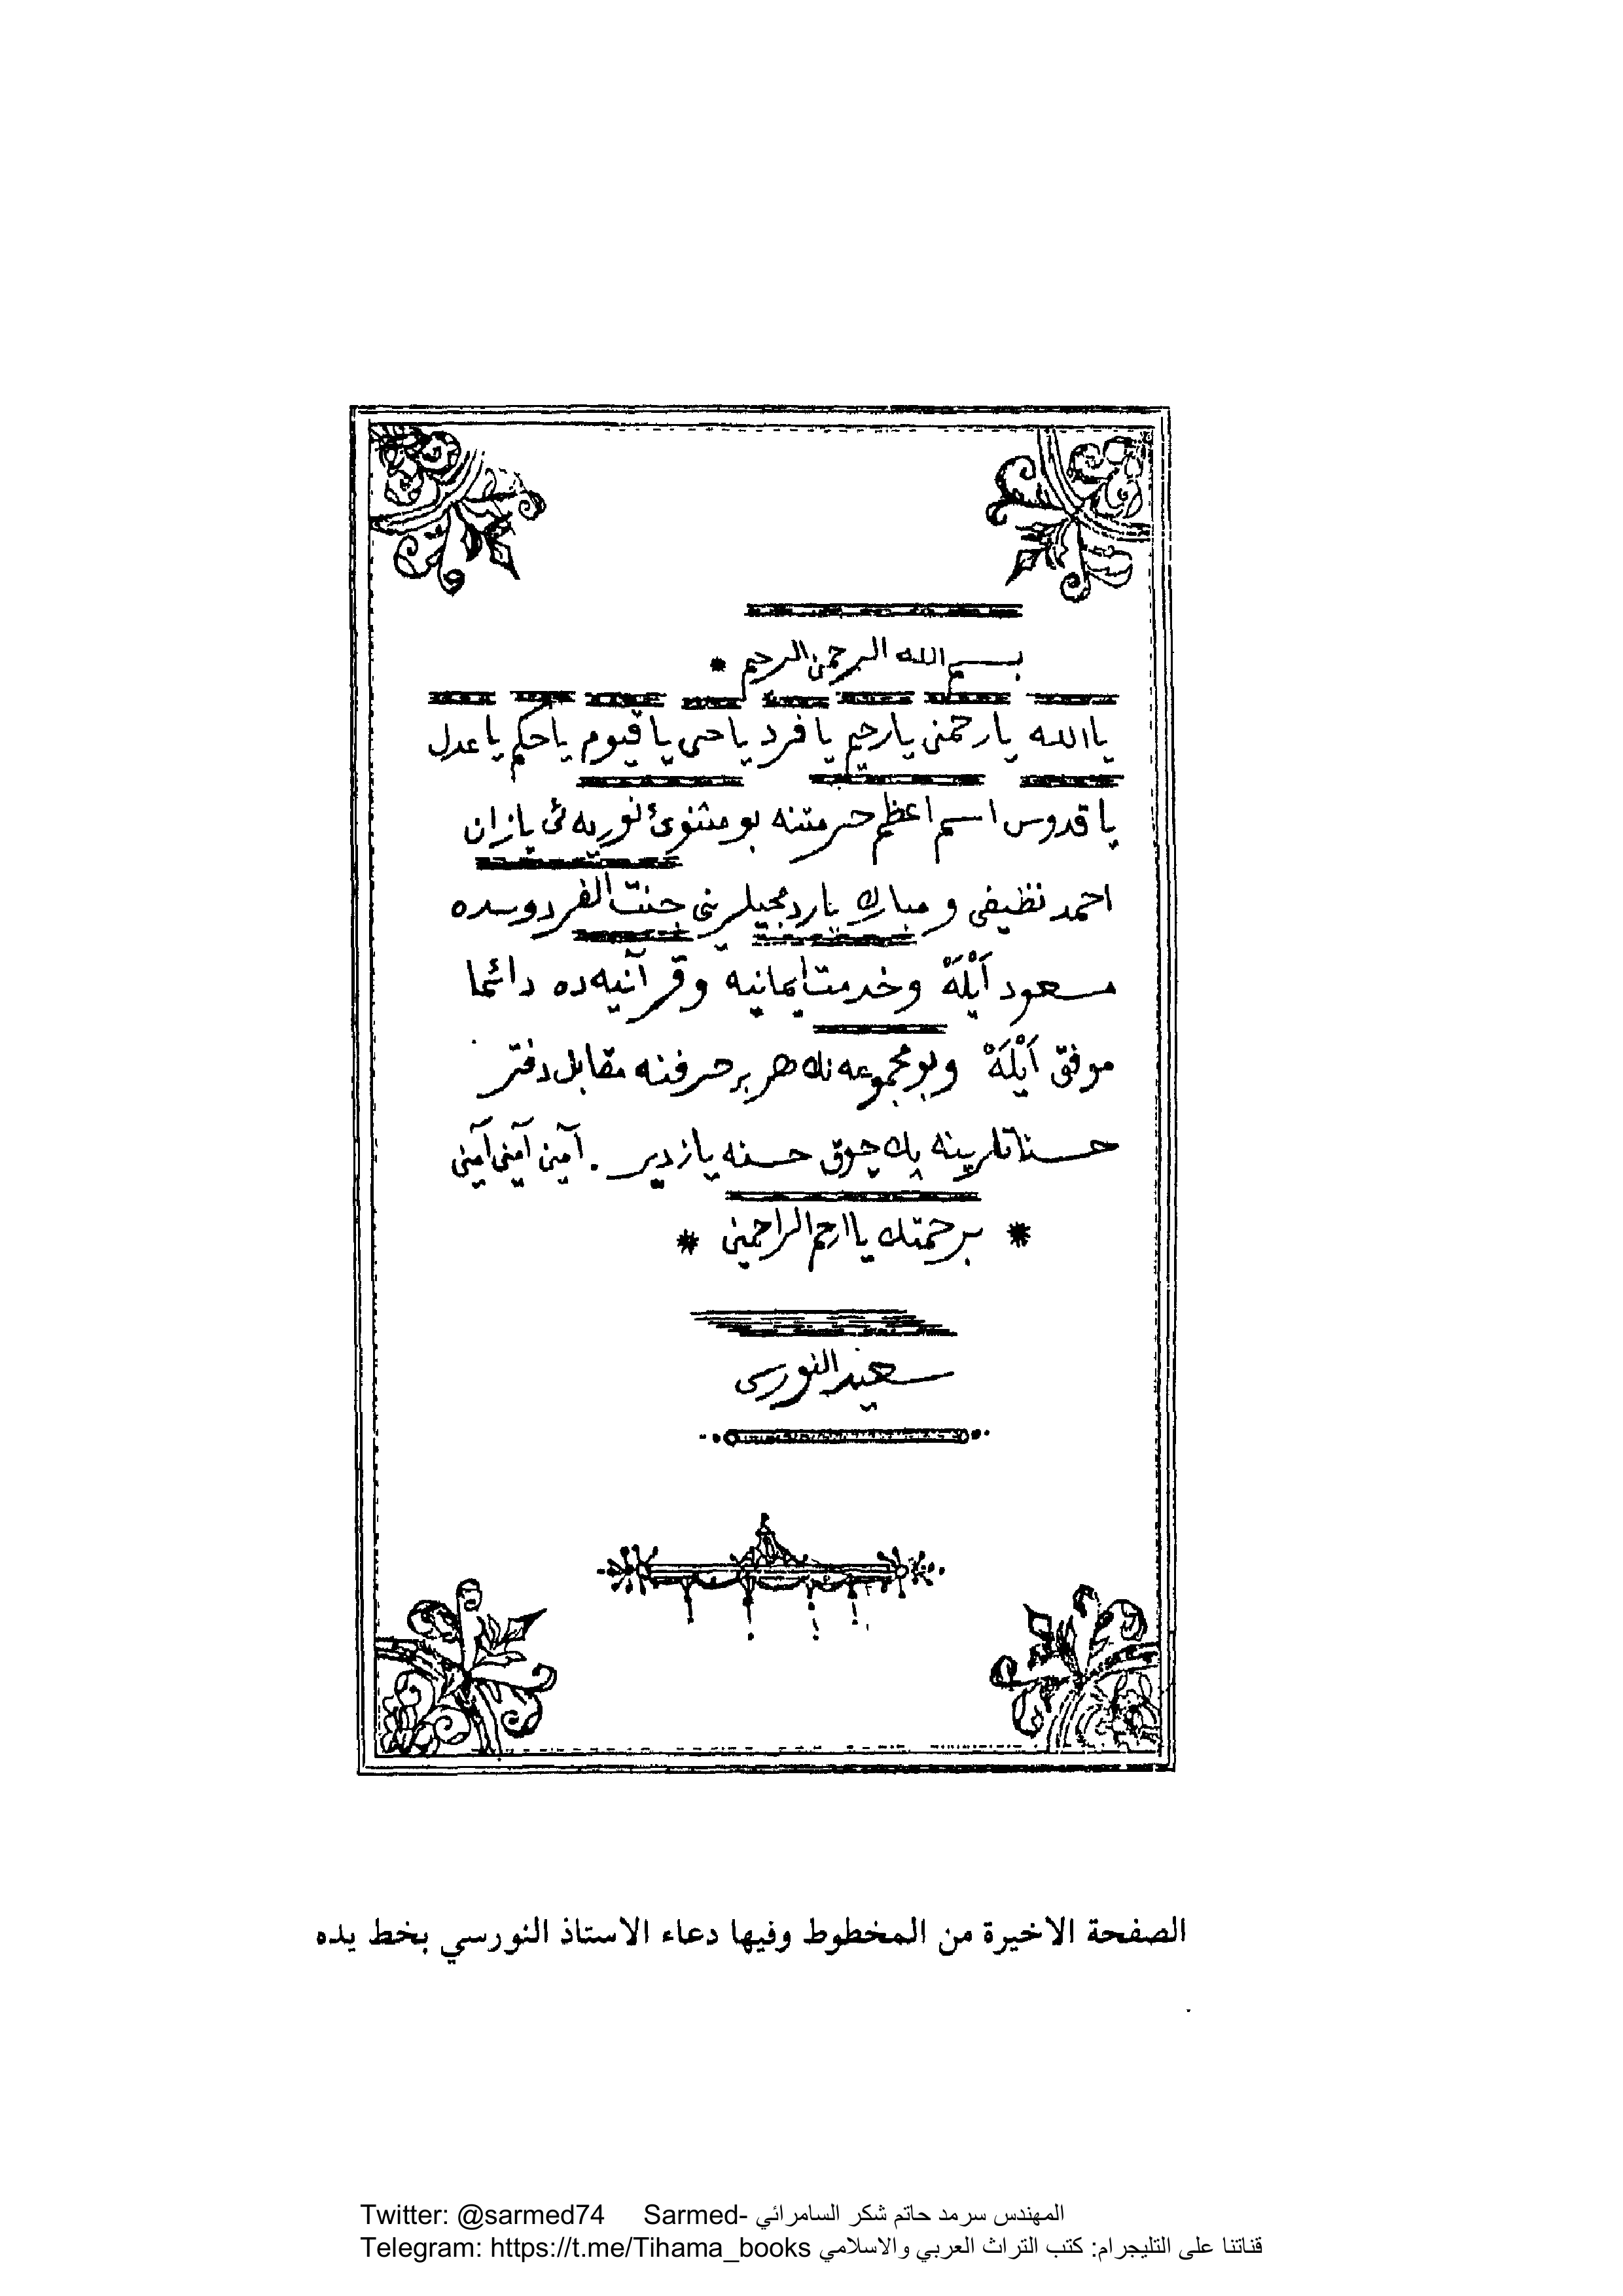 بسم الله الرحمن الرحيم *
يا الله يا رحمن يا رحيم يا فرد يا حى يا قيوم يا حكم يا عدل
يا قدوس اسم اعظم حرمتنه بو مثنوئ نوريه ئى يازان
احمد نظيفى و مبارك ياردمجيلرينى جنت الفردوسده
مسعود اَيْلَهْ وخدمت ايمانيه وقرآنيه ده دائما
موفق اَيْلَهْ وبو مجموعه نك هر بر حرفنه مقابل دفتر
حسناتلرينه پك چوق حسنه يازدير . آمين آمين آمين
* برحمتك يا ارحم الراحمين *
سعيد النورسى
الصفحة الاخيرة من المخطوط وفيها دعاء الاستاذ النورسي بخط يده
Twitter: @sarmed74 Sarmed- المهندس سرمد حاتم شكر السامرائي
Telegram: https://t.me/Tihama_books قناتنا على التليجرام: كتب التراث العربي والاسلامي